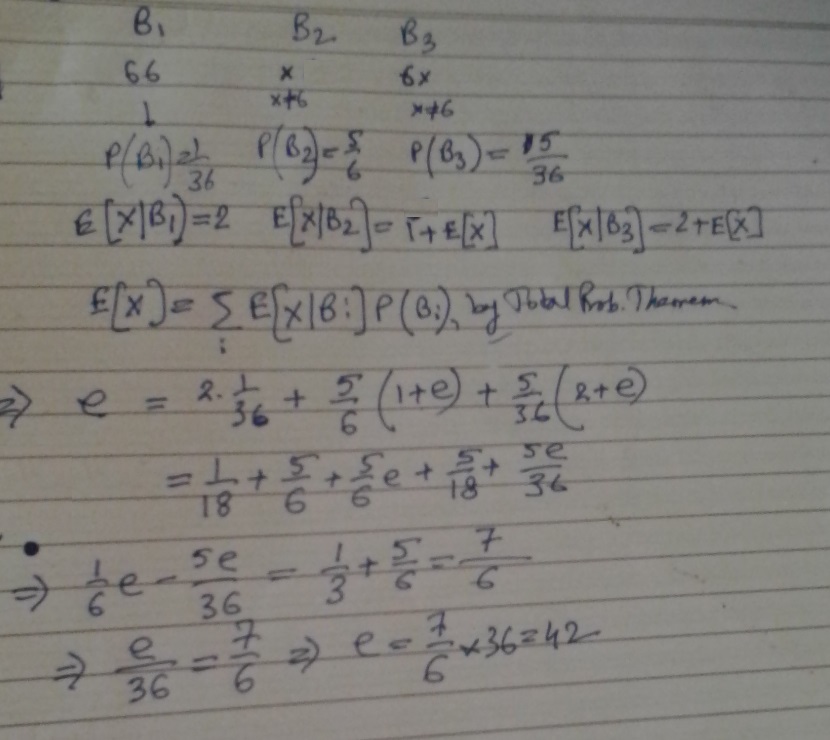 B₁ B₂ B₃
66 x 6x
x≠6 x≠6
↓
P(B₁)=1/36 P(B₂)=5/6 P(B₃)=5/36
E[X|B₁)=2 E[X|B₂]=1+E[X] E[X|B₃]=2+E[X]
E[X]=∑ᵢ E[X|Bᵢ]P(Bᵢ), by Total Prob. Theorem
⇒ e = 2.1/36 + 5/6(1+e) + 5/36(2+e)
= 1/18 + 5/6 + 5/6e + 5/18 + 5e/36
⇒ 1/6e - 5e/36 = 1/3 + 5/6 = 7/6
⇒ e/36 = 7/6 ⇒ e = 7/6×36=42